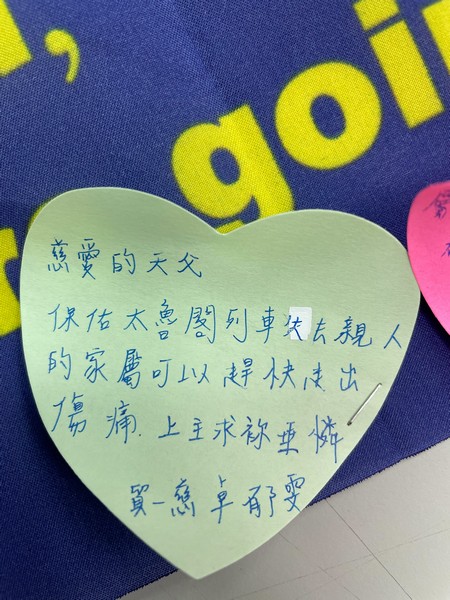 going
慈愛的天父
保佑太魯閣列車失去親人
的家屬可以趕快走出
傷痛.上主求祢垂憐
貿一慈卓郁雯